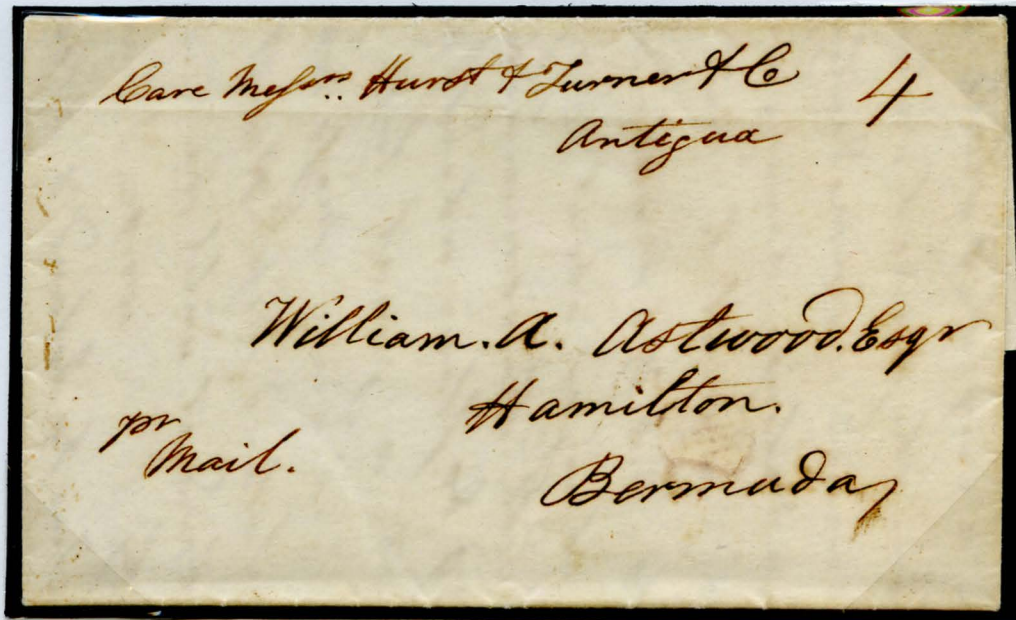 Care Messrs. Hurst & Turner & Co 4
Antigua
William. A. Astwood. Esqr
Hamilton.
pr
Mail.
Bermuda